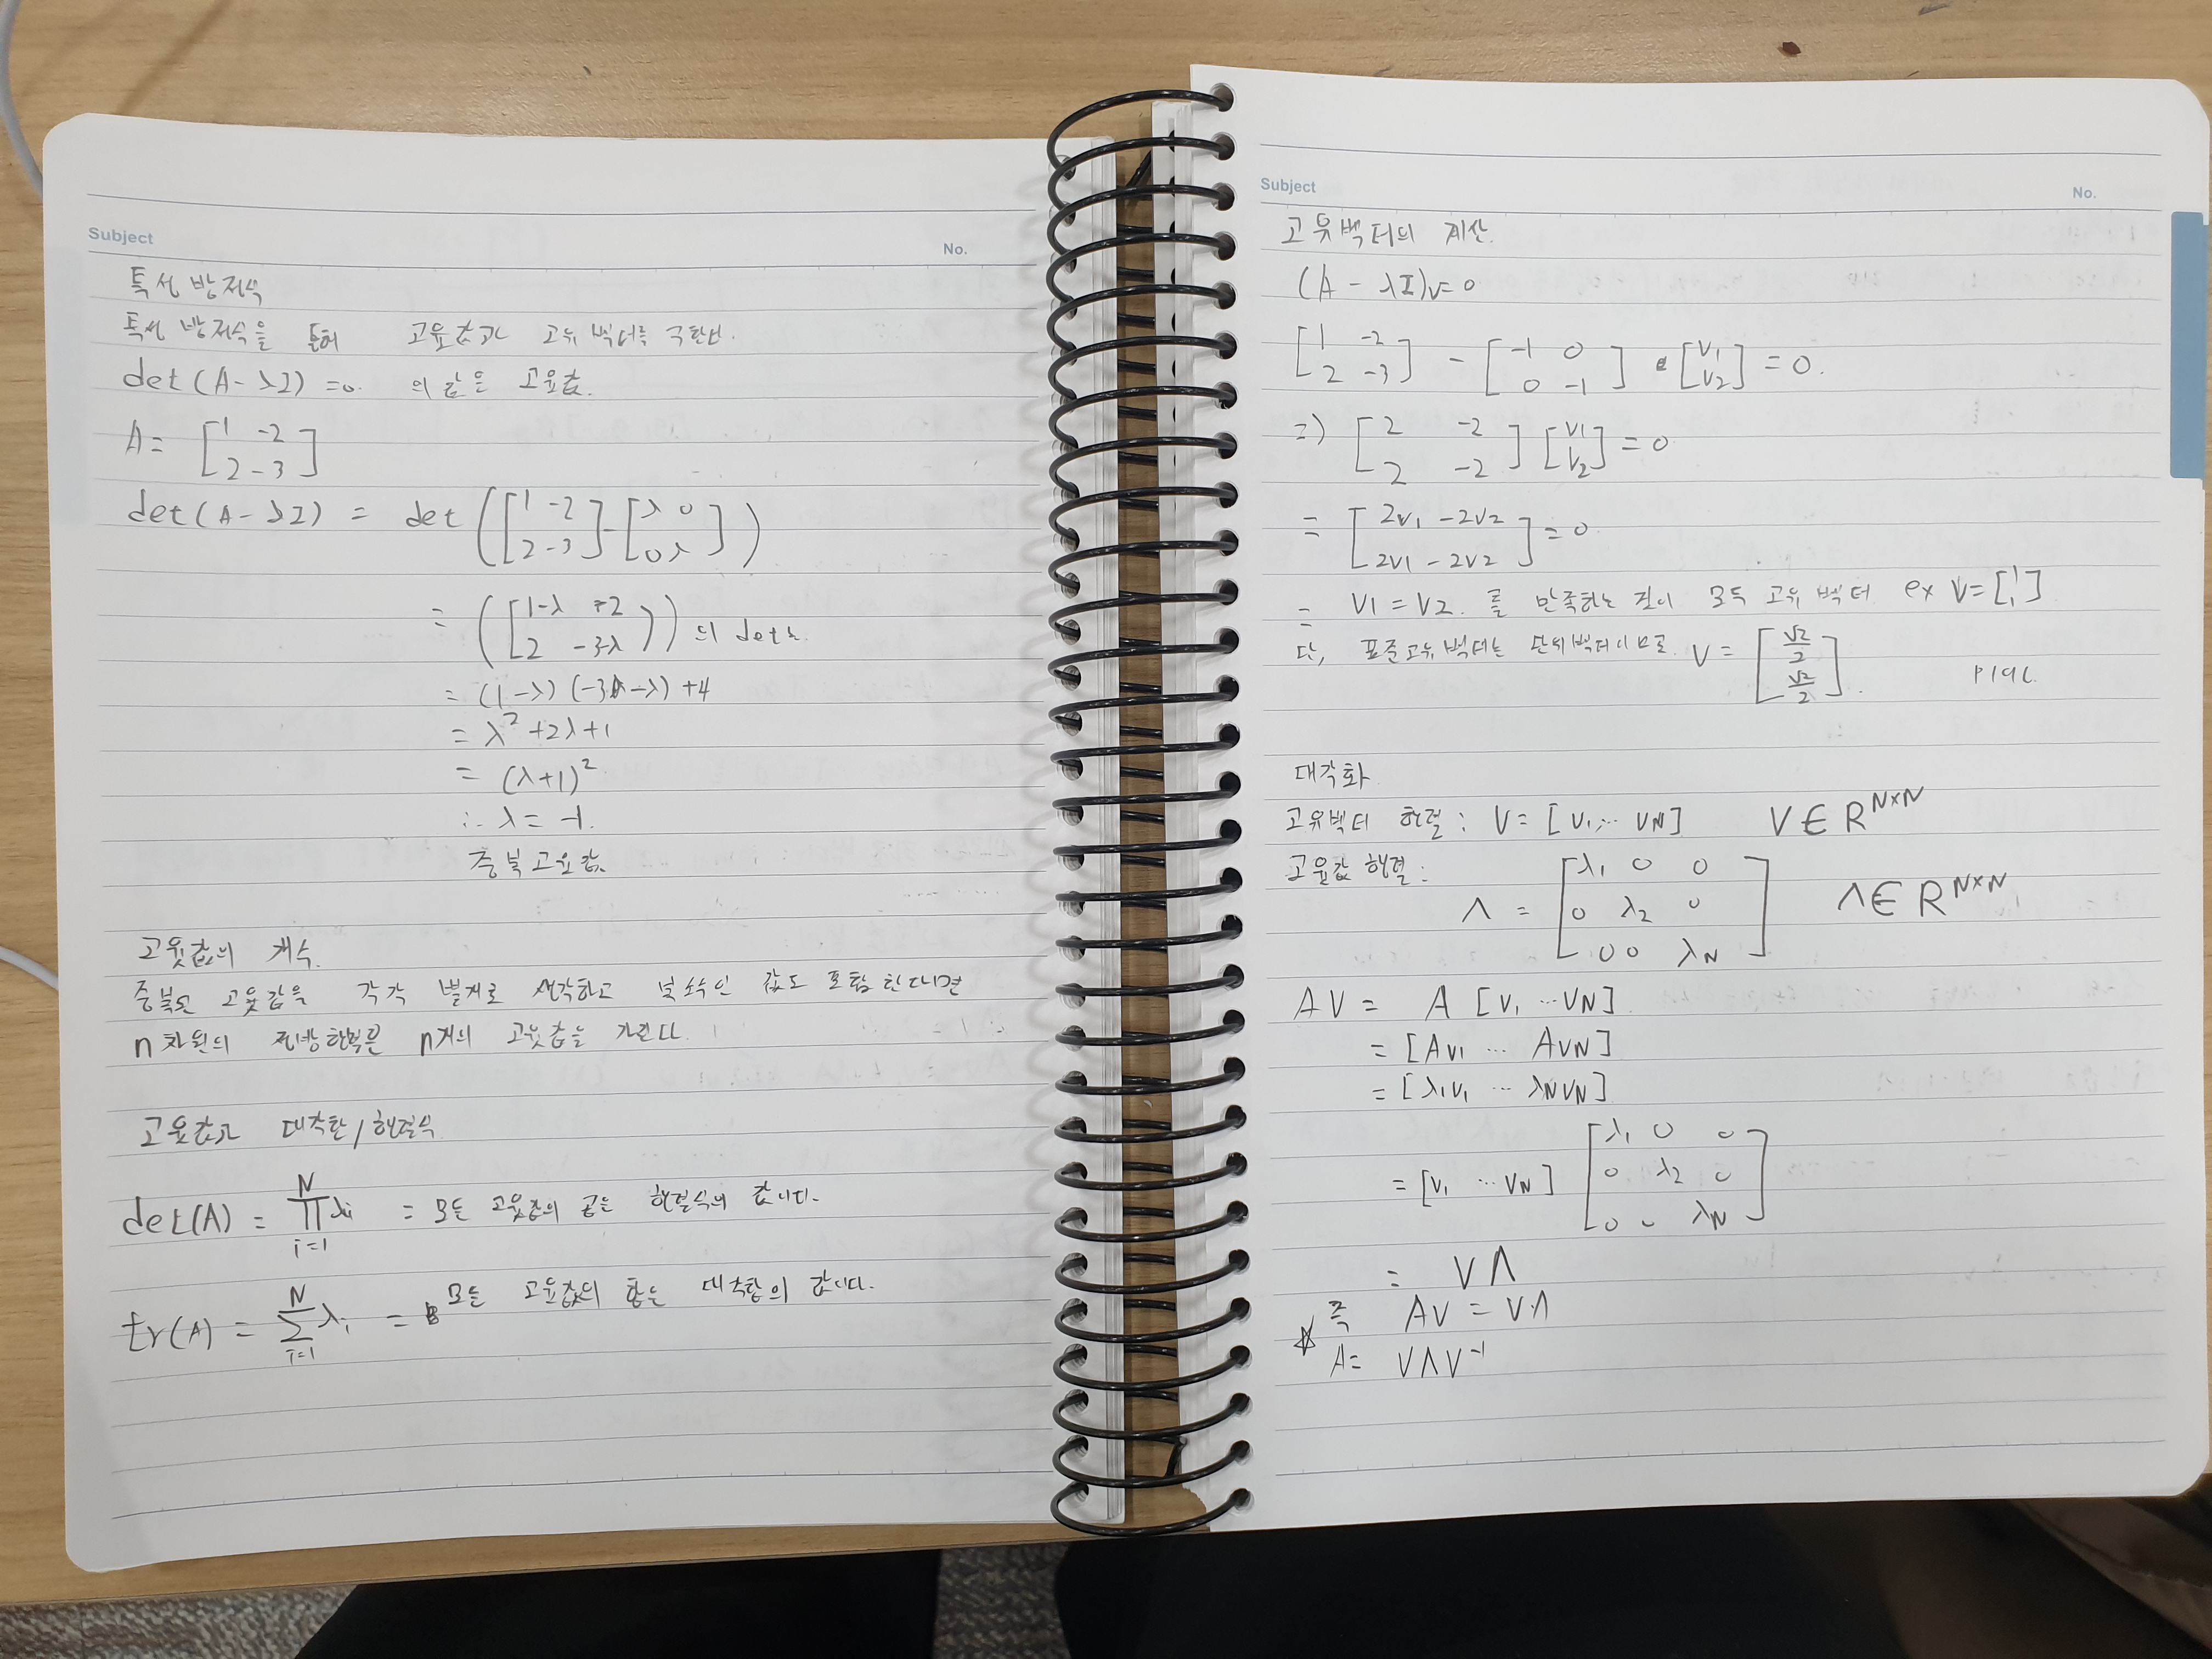 Subject
No.
특성 방정식
특성 방정식을 통해 고윳값과 고유 벡터를 구한다.
det(A-λI)=0. 의 값은 고윳값.
A= [1 -2
2 -3]
det(A-λI) = det([1 -2
2 -3]-[λ 0
0 λ])
= ([1-λ -2
2 -3-λ]) 의 det는.
= (1-λ)(-3-λ)+4
= λ²+2λ+1
= (λ+1)²
∴ λ = -1.
중복 고윳값
고윳값의 개수.
중복된 고윳값을 각각 별개로 생각하고 복소수인 값도 포함한다면
n차원의 정방행렬은 n개의 고윳값을 가진다.
고윳값과 대각합/행렬식
det(A) = ∏ᵢ₌₁ᴺ λi = 모든 고윳값의 곱은 행렬식의 값이다.
tr(A) = ∑ᵢ₌₁ᴺ λi = 모든 고윳값의 합은 대각합의 값이다.
Subject
No.
고유벡터의 계산.
(A-λI)v=0
[1 -2
2 -3] - [-1 0
0 -1] • [v1
v2] = 0.
=> [2 -2
2 -2] [v1
v2] = 0
= [2v1 -2v2
2v1 -2v2] = 0
= v1 = v2. 를 만족하는 것이 모두 고유 벡터 ex v=[1
1]
단, 표준고유벡터는 단위벡터이므로. v = [√2/2
√2/2].
대각화
고유벡터 행렬 : V = [v1, ... vN] V∈R^N×N
고윳값 행렬 :
Λ = [λ1 0 0
0 λ2 0
0 0 λN] Λ∈R^N×N
AV = A [v1 ... vN]
= [Av1 ... AvN]
= [λ1v1 ... λNvN]
= [v1 ... vN] [λ1 0 0
0 λ2 0
0 0 λN]
= VΛ
☆ 즉 AV = VΛ
A= VΛV⁻¹